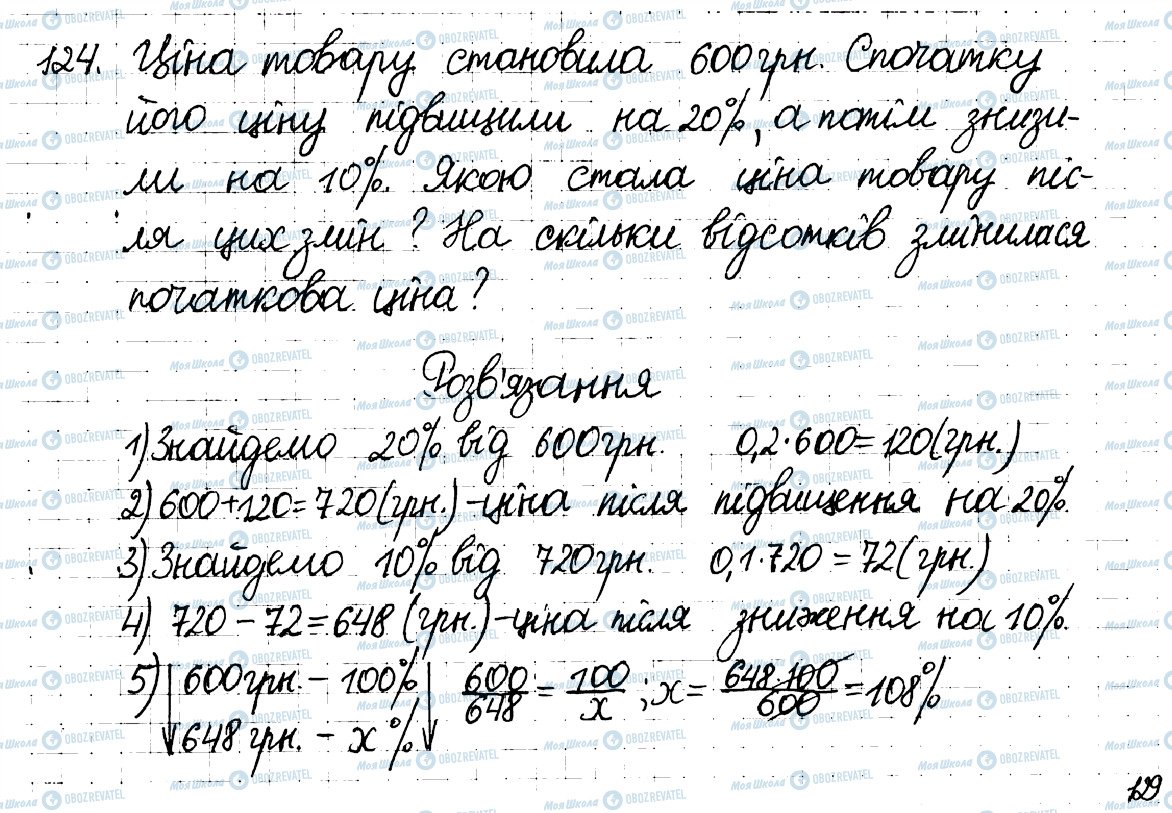 124. Ціна товару становила 600 грн. Спочатку
його ціну підвищили на 20%, а потім знизи-
ли на 10%. Якою стала ціна товару піс-
ля цих змін? На скільки відсотків змінилася
початкова ціна?
Розв'язання
1) Знайдемо 20% від 600 грн. 0,2·600=120(грн.)
2) 600+120=720(грн.)-ціна після підвищення на 20%.
3) Знайдемо 10% від 720 грн. 0,1·720=72(грн.)
4) 720-72=648(грн.)-ціна після зниження на 10%.
5) 600 грн. - 100% 600/648 = 100/x; x = 648·100/600 = 108%
648 грн. - x%
129
МояШкола OBOZREVATEL